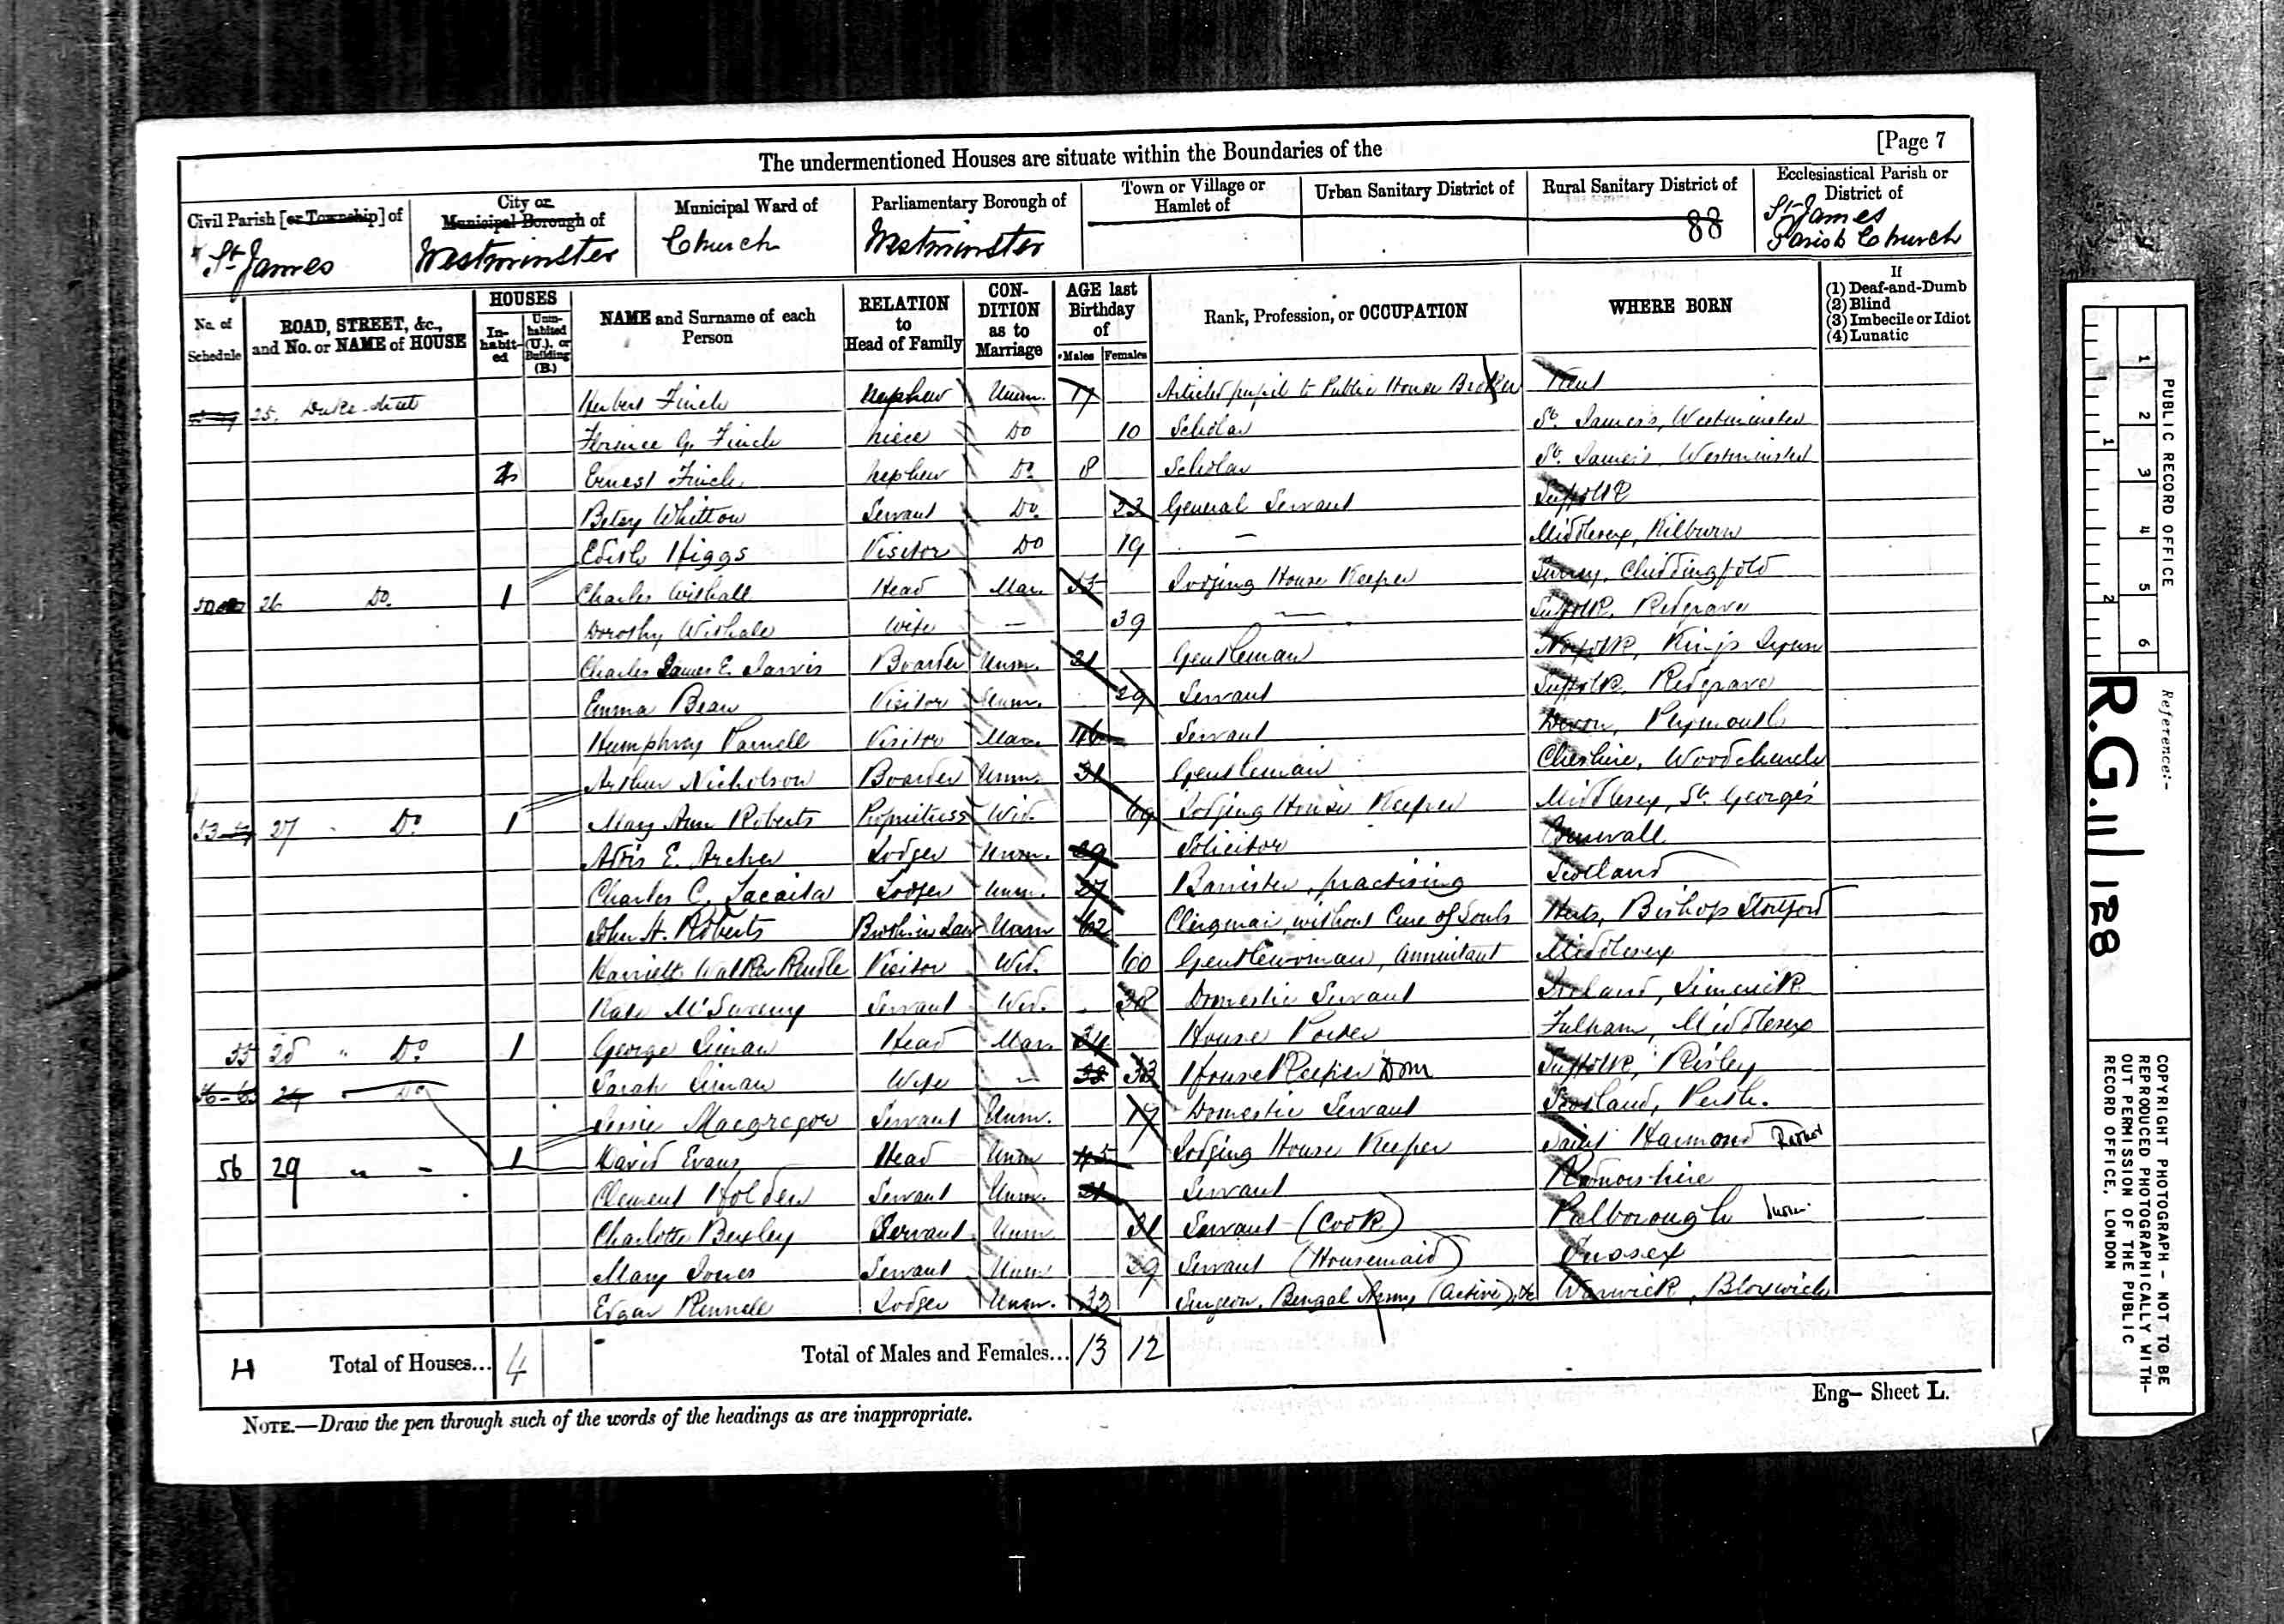 The undermentioned Houses are situate within the Boundaries of the
[Page 7
Civil Parish [or Township] of
St James
City or Municipal Borough of
Westminster
Municipal Ward of
Church
Parliamentary Borough of
Westminster
Town or Village or Hamlet of
Urban Sanitary District of
Rural Sanitary District of
88
Ecclesiastical Parish or District of
St James
Parish Church
No. of Schedule
ROAD, STREET, &c., and No. or NAME of HOUSE
HOUSES
In-habit-ed
Unin-habited (U.), or Building (B.)
NAME and Surname of each Person
RELATION to Head of Family
CON-DITION as to Marriage
AGE last Birthday of
Males
Females
Rank, Profession, or OCCUPATION
WHERE BORN
If
(1) Deaf-and-Dumb
(2) Blind
(3) Imbecile or Idiot
(4) Lunatic
25. Duke street Herbert Finch Nephew Unm. 17 Articled pupil to Public House Broker Kent
Florence G. Finch Niece Do 10 Scholar St. James's, Westminster
Ernest Finch Nephew Do. 8 Scholar St. James's, Westminster
Betsy Whitton Servant Do. General Servant Suffolk
Edith Higgs Visitor Do 19 — Middlesex, Kilburn
26 Do. 1 Charles Withall Head Mar. Lodging House Keeper Surrey, Chiddingfold
Dorothy Withall Wife — 39 — Suffolk, Redgrave
Charles James E. Jarvis Boarder Unm. 21 Gentleman Norfolk, Kings Lynn
Emma Bean Visitor Unm. 29 Servant Suffolk, Redgrave
Humphrey Parnell Visitor Mar. 46 Servant Devon, Plymouth
Arthur Nicholson Boarder Unm. 31 Gentleman Cheshire, Woodchurch
27 Do 1 Mary Ann Roberts Proprietress Wid. 69 Lodging House Keeper Middlesex, St. George's
E. Archer Lodger Unm. 29 Solicitor Cornwall
Charles C. Lacaita Lodger Unm. 27 Barrister, practising Scotland
John H. Roberts Broth in Law Unm 62 Clergman, without Cure of Souls Herts, Bishops Stortford
Harriett Walker Rendle Visitor Wid. 60 Gentlewoman, Annuitant Middlesex
Kate McSweeny Servant Wid. 38 Domestic Servant Ireland, Limerick
55 28 " Do. 1 George Siman Head Mar. 34 House Porter Fulham, Middlesex
29 Do Sarah Siman Wife — 33 33 House Keeper Dom Suffolk, Risley
Jessie Macgregor Servant Unm. 17 Domestic Servant Scotland, Perth.
56 29 " - 1 David Evans Head Unm 45 Lodging House Keeper Saint Harmond
Clement Holden Servant Unm. 21 Servant Radnorshire
Charlotte Bexley Servant Unm 31 Servant (Cook) Pulborough
Mary Jones Servant Unm 29 Servant (Housemaid) Sussex
Edgar Rennell Lodger Unm. 33 Surgeon, Bengal Army (Active), &c Warwick, Bloxwich
4 Total of Houses... 4
Total of Males and Females... 13 12
NOTE.—Draw the pen through such of the words of the headings as are inappropriate.
Eng— Sheet L.
PUBLIC RECORD OFFICE
1 2 3 4 5 6
1 2
Reference:-
R.G. 11/128
COPYRIGHT PHOTOGRAPH - NOT TO BE
REPRODUCED PHOTOGRAPHICALLY WITH-
OUT PERMISSION OF THE PUBLIC
RECORD OFFICE, LONDON